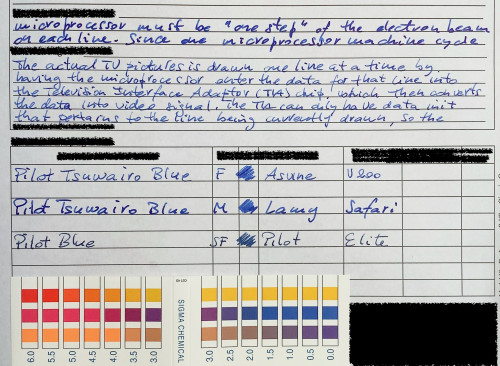 microprocessor must be "one step" of the electron beam
on each line. Since one microprocessor machine cycle
The actual TV pictures is drawn one line at a time by
having the microprocessor enter the data for that line into
the Television Interface Adaptor (TIA) chip, which then converts
the data into video signal. The TIA can only have data in it
that pertains to the line being currently drawn, so the
Pilot Tsuwairo Blue F Asune V200
Pilot Tsuwairo Blue M Lamy Safari
Pilot Blue SF Pilot Elite
SIGMA CHEMICAL
6.0 5.5 5.0 4.5 4.0 3.5 3.0
3.0 2.5 2.0 1.5 1.0 0.5 0.0